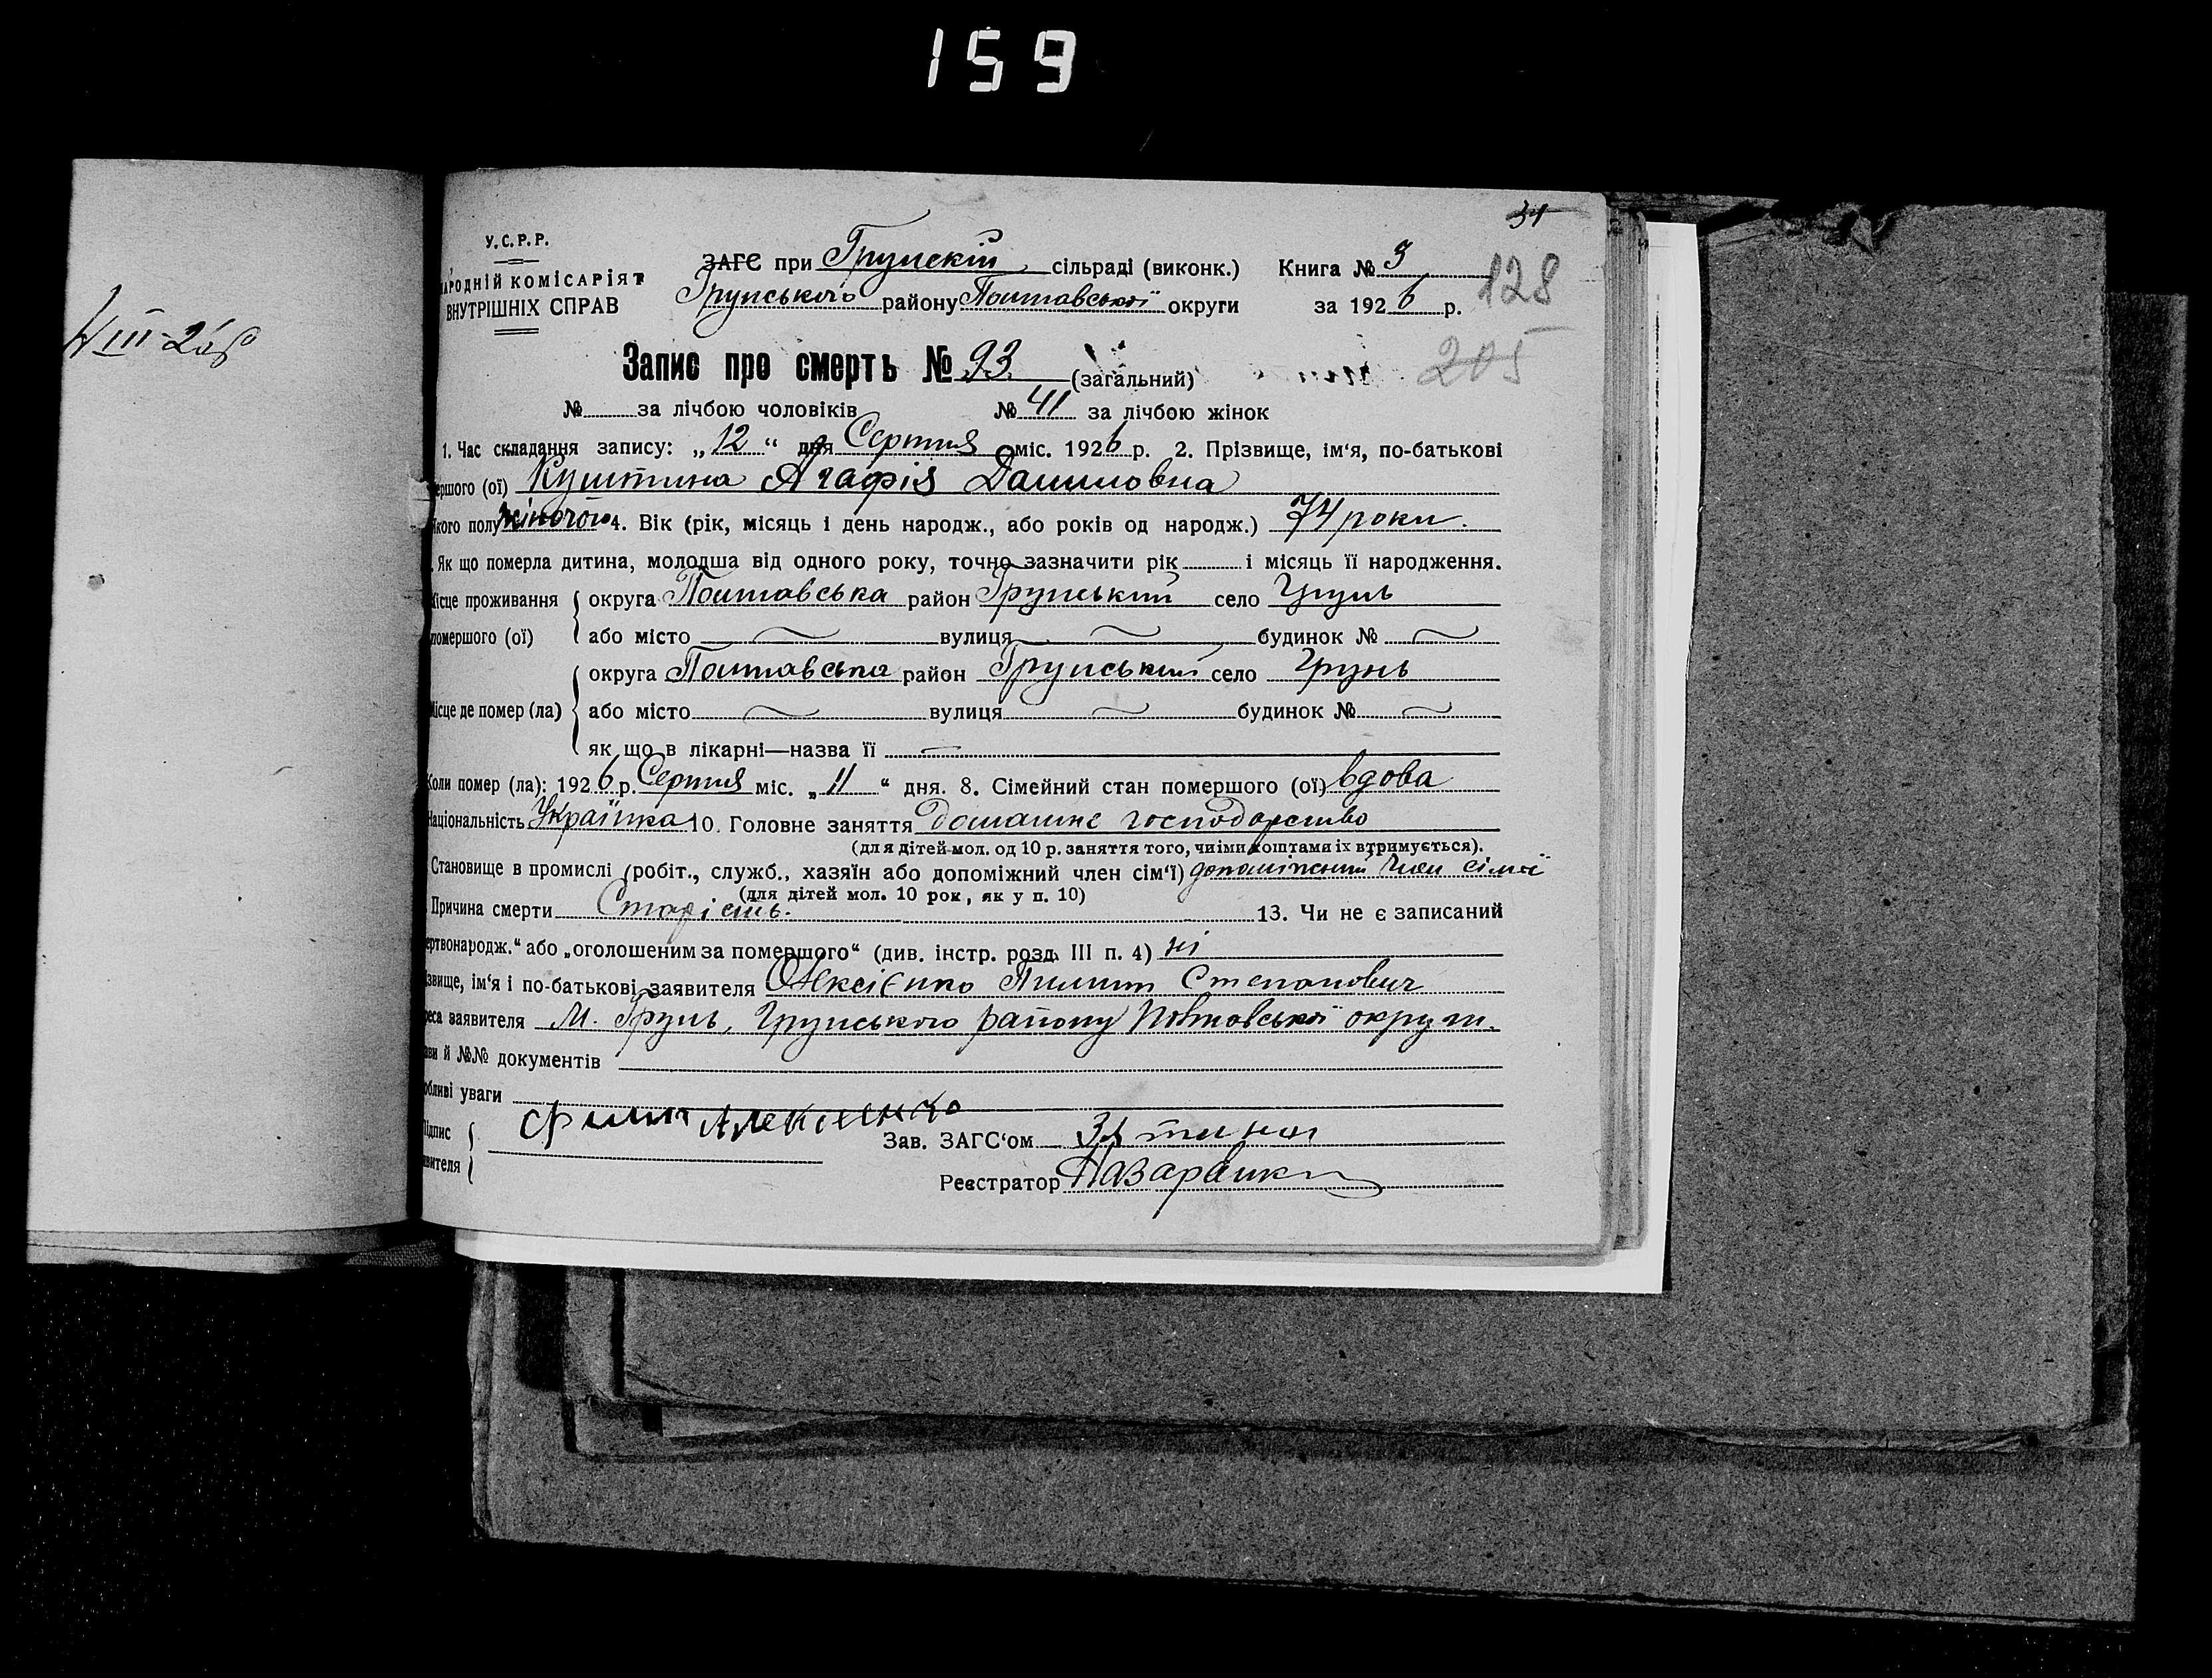 159
31
У.С.Р.Р.
НАРОДНІЙ КОМІСАРІЯТ
ВНУТРІШНІХ СПРАВ
ЗАГС при Грунскій сільраді (виконк.) Книга № 3
Грунського району Полтавської округи за 1926 р.
128
205
VIII-26р
Запис про смерть № 93 (загальний)
№ за лічбою чоловіків № 41 за лічбою жінок
1. Час складання запису: „12“ дня Серпня міс. 1926 р. 2. Прізвище, ім'я, по-батькові
ершого (ої) Агафія Даниловна
якого полу жіночого 4. Вік (рік, місяць і день народж., або років од народж.) 74 роки.
. Як що померла дитина, молодша від одного року, точно зазначити рік і місяць її народження.
Місце проживання округа Полтавська район Грунський село Грунь
помершого (ої) або місто — вулиця — будинок № —
округа Полтавська район Грунський село Грунь
Місце де помер (ла) або місто — вулиця — будинок № —
як що в лікарні—назва її —
Коли помер (ла): 1926 р. Серпня міс. „11“ дня. 8. Сімейний стан помершого (ої) вдова
Національність Українка 10. Головне заняття домашнє господарство
(для дітей мол. од 10 р. заняття того, чиїми коштами їх втримується).
Становище в промислі (робіт., служб., хазяїн або допоміжний член сім'ї) допоміжний член сімї
(для дітей мол. 10 рок, як у п. 10)
Причина смерти Старість. 13. Чи не є записаний
ертвонародж.“ або „оголошеним за помершого“ (див. інстр. розд. III п. 4) ні
ізвище, ім'я і по-батькові заявителя Олексієнко Пилип Степанович
реса заявителя М. Грунь, Грунського району Полтовської округи.
ви й №№ документів
обливі уваги
Підпис
явителя Филип Алексіенко
Зав. ЗАГС'ом
Реєстратор